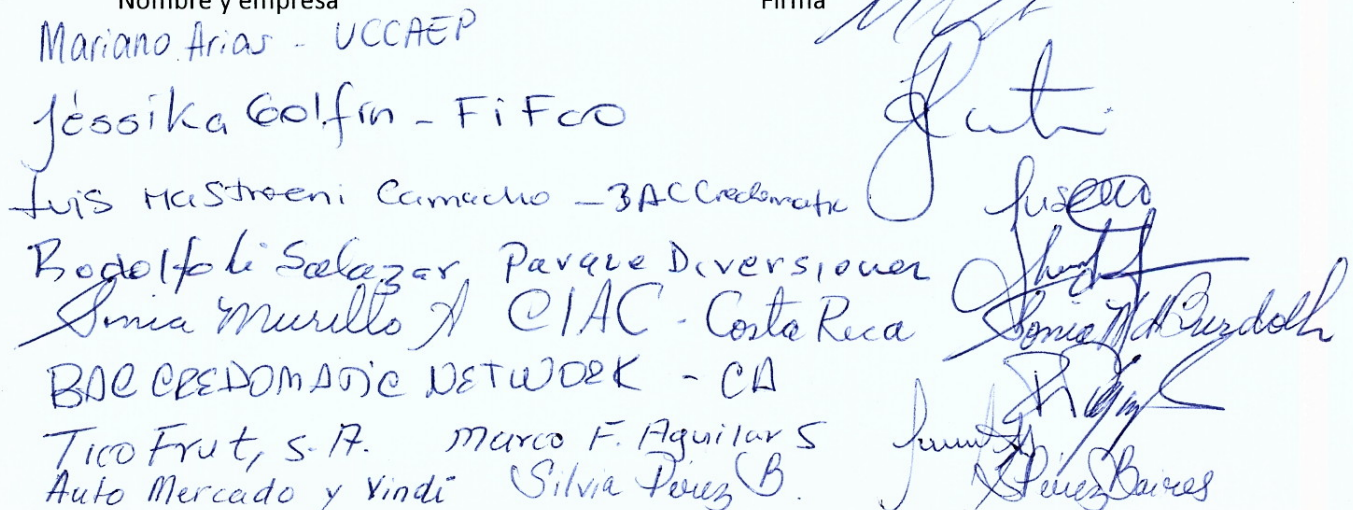 Nombre y empresa Firma
Mariano Arias - UCCAEP
Jéssika Golfín - FiFco
Luis Mastroeni Camacho - BAC Credomatic
Rodolfo Li Salazar, Parque Diversiones
Sonia Murillo A CIAC - Costa Rica Sonia M d Burdolh
BAC CREDOMATIC NETWORK - CA
Tico Frut, S.A. Marco F. Aguilar S
Auto Mercado y Vindi Silvia Pérez B. SPérez Baires